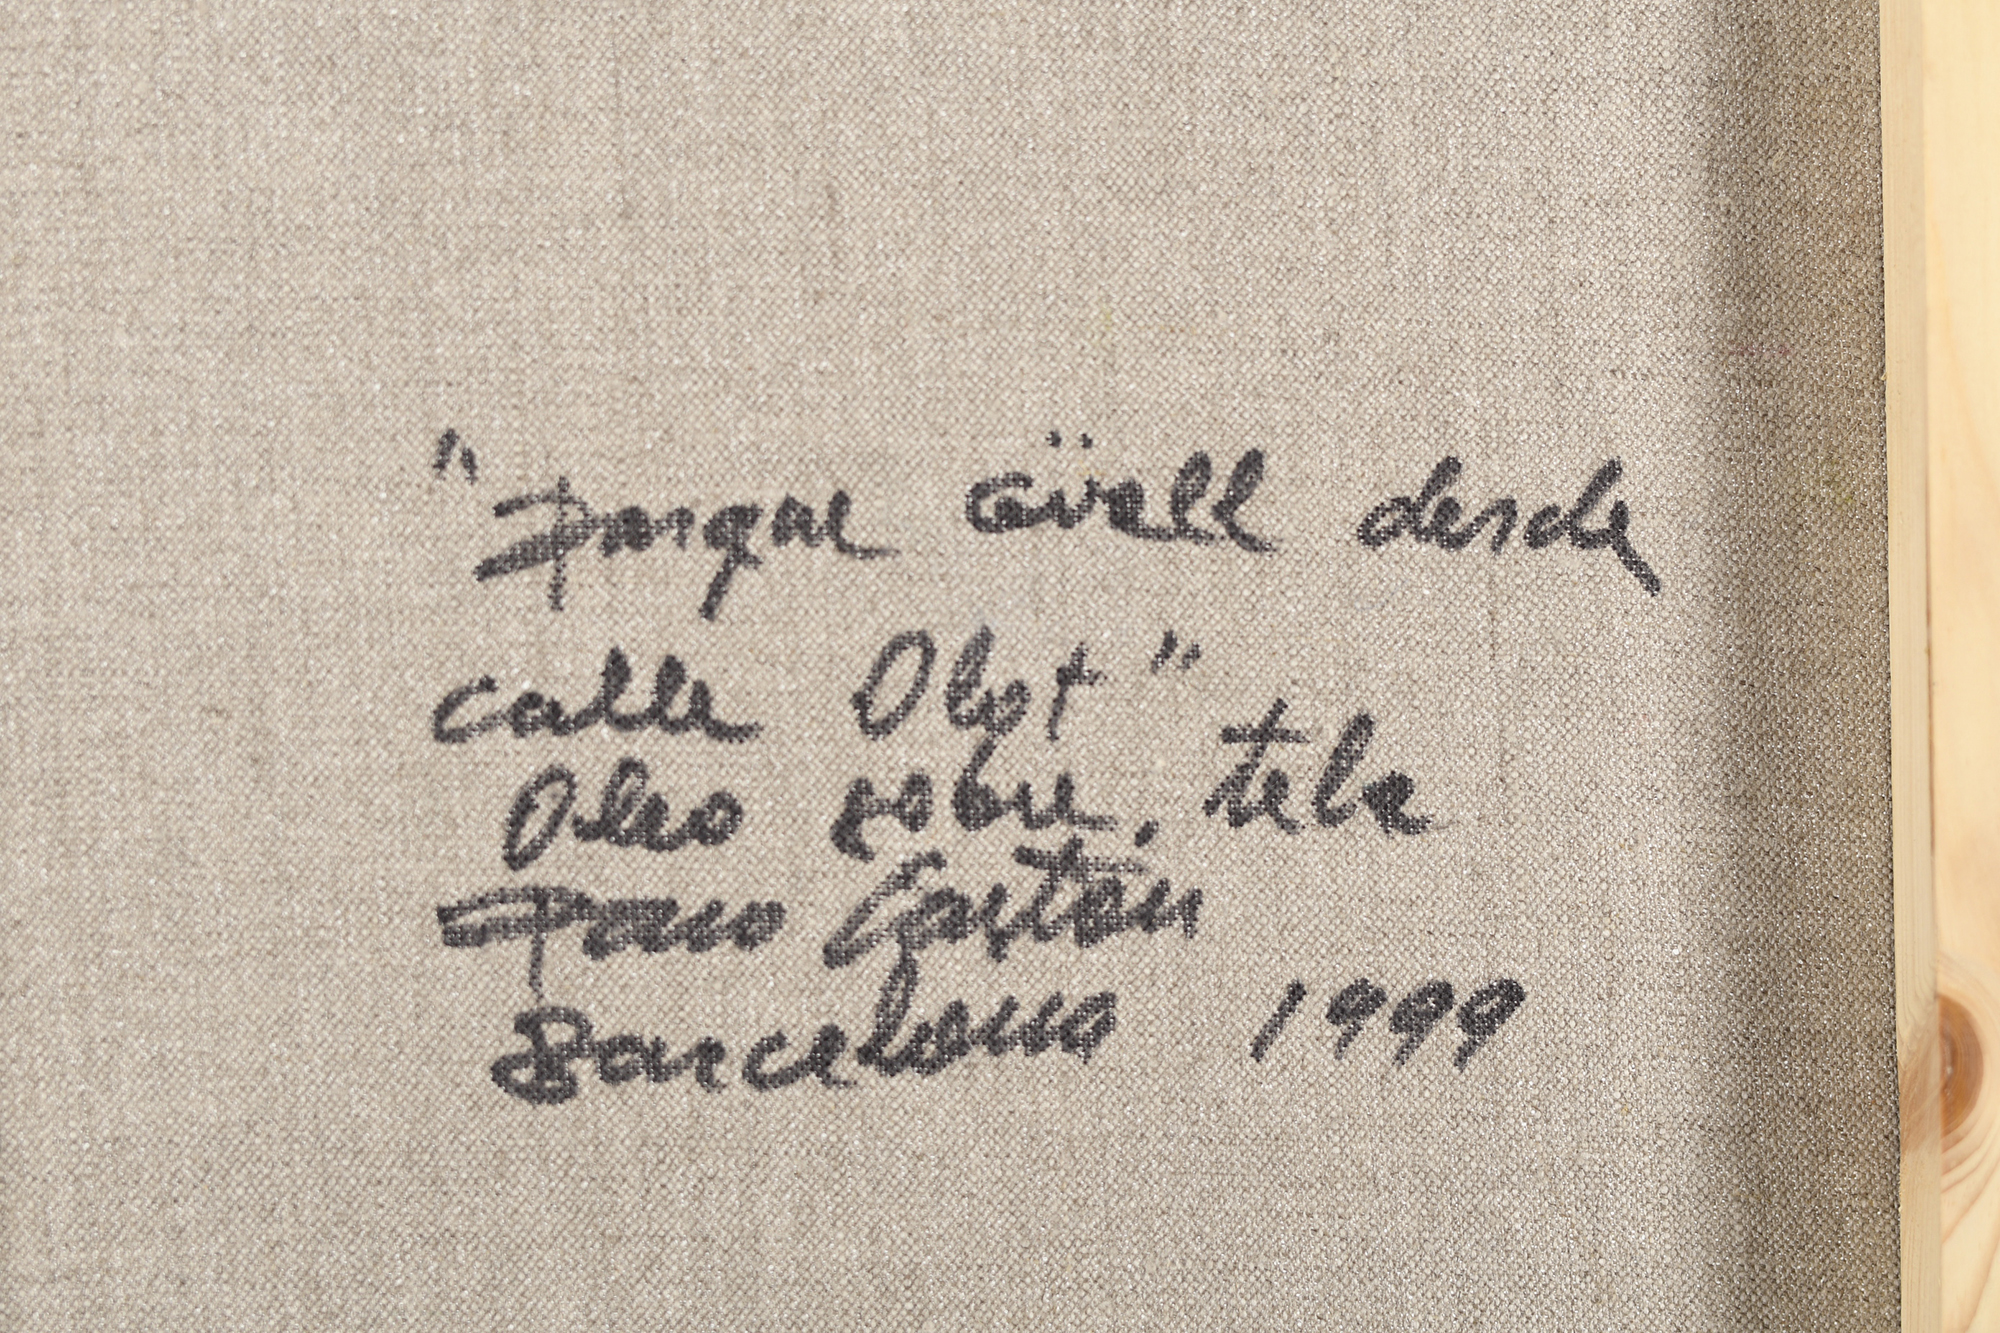 "Parque Güell desde
calle Olot"
Oleo sobre, tela
Paco Castón
Barcelona 1999